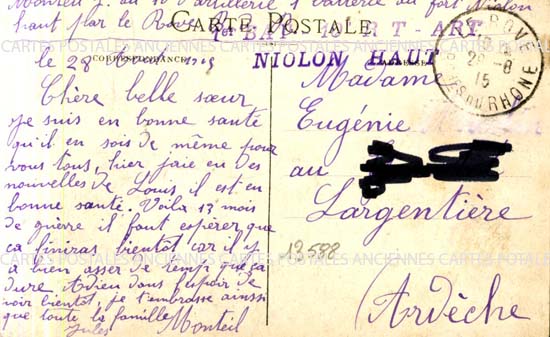 Monteil J. au 10 d'artillerie 1 batterie au fort Niolon
haut par le Rove
CARTE POSTALE
CORRESPONDANCE
le 28 1915
Chère belle sœur
je suis en bonne santé
qu'il en sois de même pour
vous tous, hier j'aie eu des
nouvelles de Louis, il est en
bonne santé. Voila 13 mois
de guerre il faut espérer que
ça finiras bientôt car il y
a bien asser de temps que ça
dure Adieu dans l'espoir de
voir bientôt, je t'embrasse ainsi
que toute la famille
Jules Monteil
ART
NIOLON HAUT
ROVE
28-8
15
BES DU RHONE
Madame
Eugénie
au
Largentière
(Ardèche
13588
CARTES POSTALES ANCIENNES CARTES POSTALES ANCIENNES CARTES POSTALES